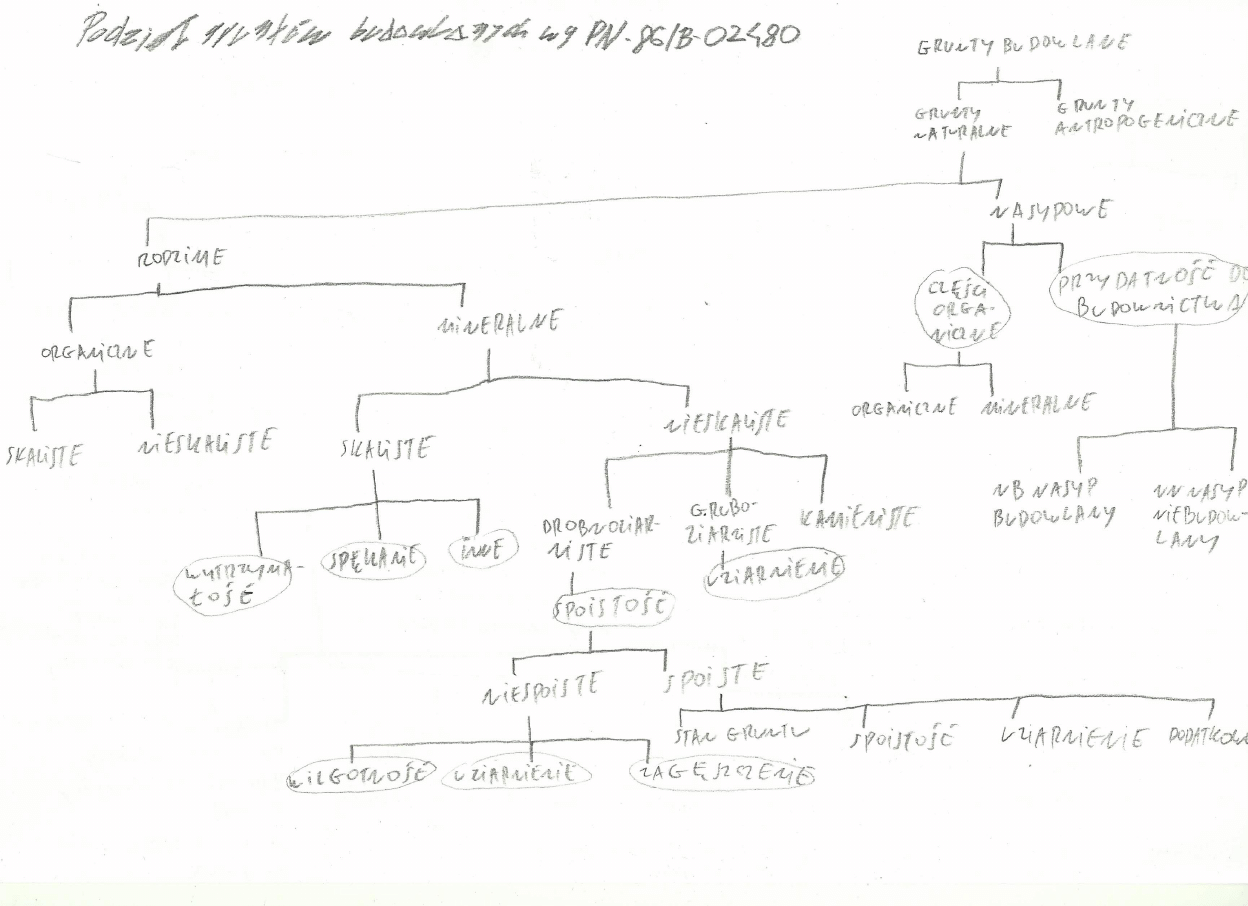 Podział gruntów budowlanych wg PN-86/B-02480
GRUNTY BUDOWLANE
GRUNTY
NATURALNE
GRUNTY
ANTROPOGENICZNE
RODZIME
NASYPOWE
ORGANICZNE
MINERALNE
CZĘŚCI
ORGA-
NICZNE
PRZYDATNOŚĆ DO
BUDOWNICTWA
SKALISTE
NIESKALISTE
SKALISTE
NIESKALISTE
ORGANICZNE
MINERALNE
WYTRZYMA-
ŁOŚĆ
SPĘKANIE
INNE
DROBNOZIAR-
NISTE
GRUBO-
ZIARNISTE
KAMIENISTE
NB NASYP
BUDOWLANY
NN NASYP
NIEBUDOW-
LANY
UZIARNIENIE
SPOISTOŚĆ
NIESPOISTE
SPOISTE
STAN GRUNTU
SPOISTOŚĆ
UZIARNIENIE
WILGOTNOŚĆ
UZIARNIENIE
ZAGĘSZCZENIE